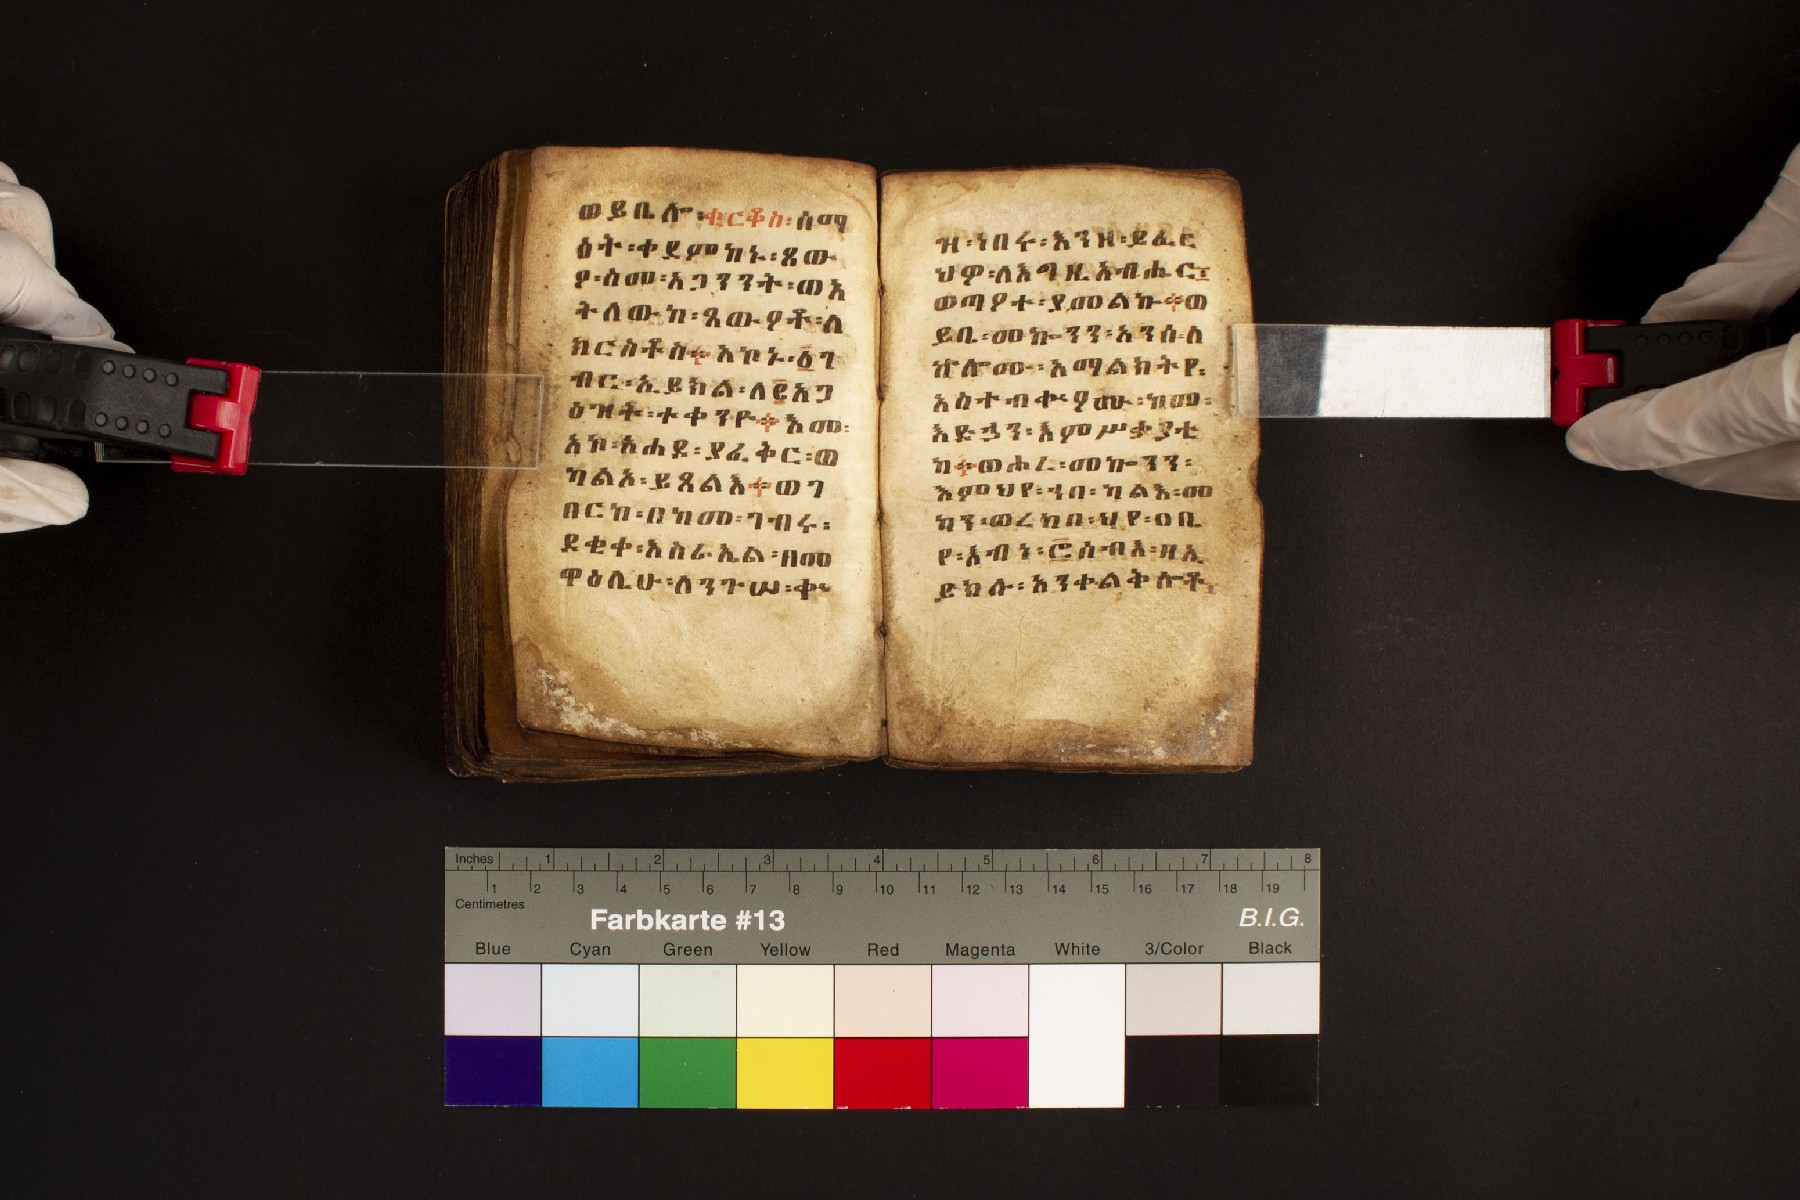 ወይቤሎ፡ቂርቆስ፡ሰማ
ዕት፡ቀደምክኑ፡ጼው
ዖ፡ስመ፡አጋንንት፡ወአ
ትለውከ፡ጼውዖቶ፡ለ
ክርስቶስ፡አኮኑ፡፩ገ
ብር፡ኢይክል፡ለ፪አጋ
ዕዝት፡ተቀንዮ፡እመ፡
አኮ፡አሐደ፡ያፈቅር፡ወ
ካልአ፡ይጸልእ፡ወገ
በርከ፡በከመ፡ገብሩ፡
ደቂቀ፡እስራኤል፡ዘመ
ዋዕሊሁ፡ለንጉሠ፡ቀ
ዝ፡ነበሩ፡እንዘ፡ይፈር
ህዎ፡ለእግዚአብሔር፤
ወጣዖተ፡ያመልኩ፡ወ
ይቤ፡መኰንን፡አንሰ፡ለ
ኵሎሙ፡አማልክትየ፡
አስተብቍዖሙ፡ከመ፡
አድኃን፡እምሥቃያቲ
ከ፡ወሖረ፡መኰንን፡
እምህየ፡ኀበ፡ካልእ፡መ
ካን፡ወረከበ፡ህየ፡ዐቢ
የ፡እብነ፡፴ሰብእ፡ዘኢ
ይክሉ፡አንቀልቅሎቶ፡
Inches 1 2 3 4 5 6 7 8
1 2 3 4 5 6 7 8 9 10 11 12 13 14 15 16 17 18 19
Centimetres
Farbkarte #13 B.I.G.
Blue Cyan Green Yellow Red Magenta White 3/Color Black